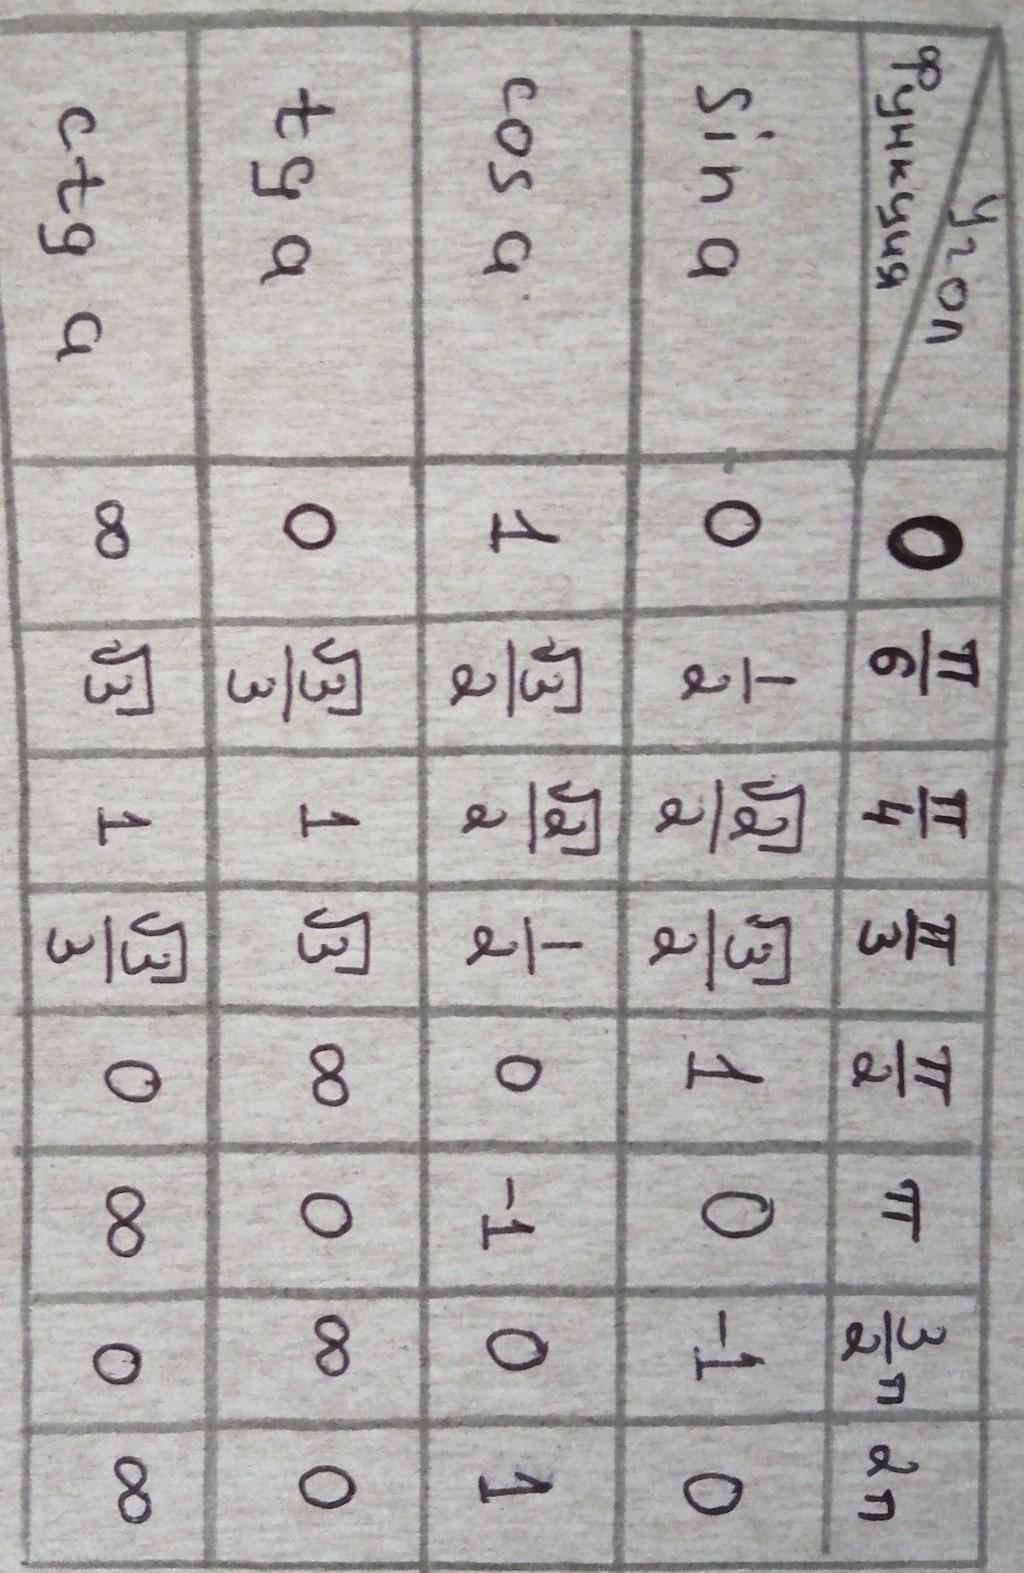 Функция Угол 0 π/6 π/4 π/3 π/2 π 3/2 π 2π
Sin a 0 1/2 √2/2 √3/2 1 0 -1 0
cos a 1 √3/2 √2/2 1/2 0 -1 0 1
tg a 0 √3/3 1 √3 ∞ 0 ∞ 0
ctg a ∞ √3 1 √3/3 0 ∞ 0 ∞